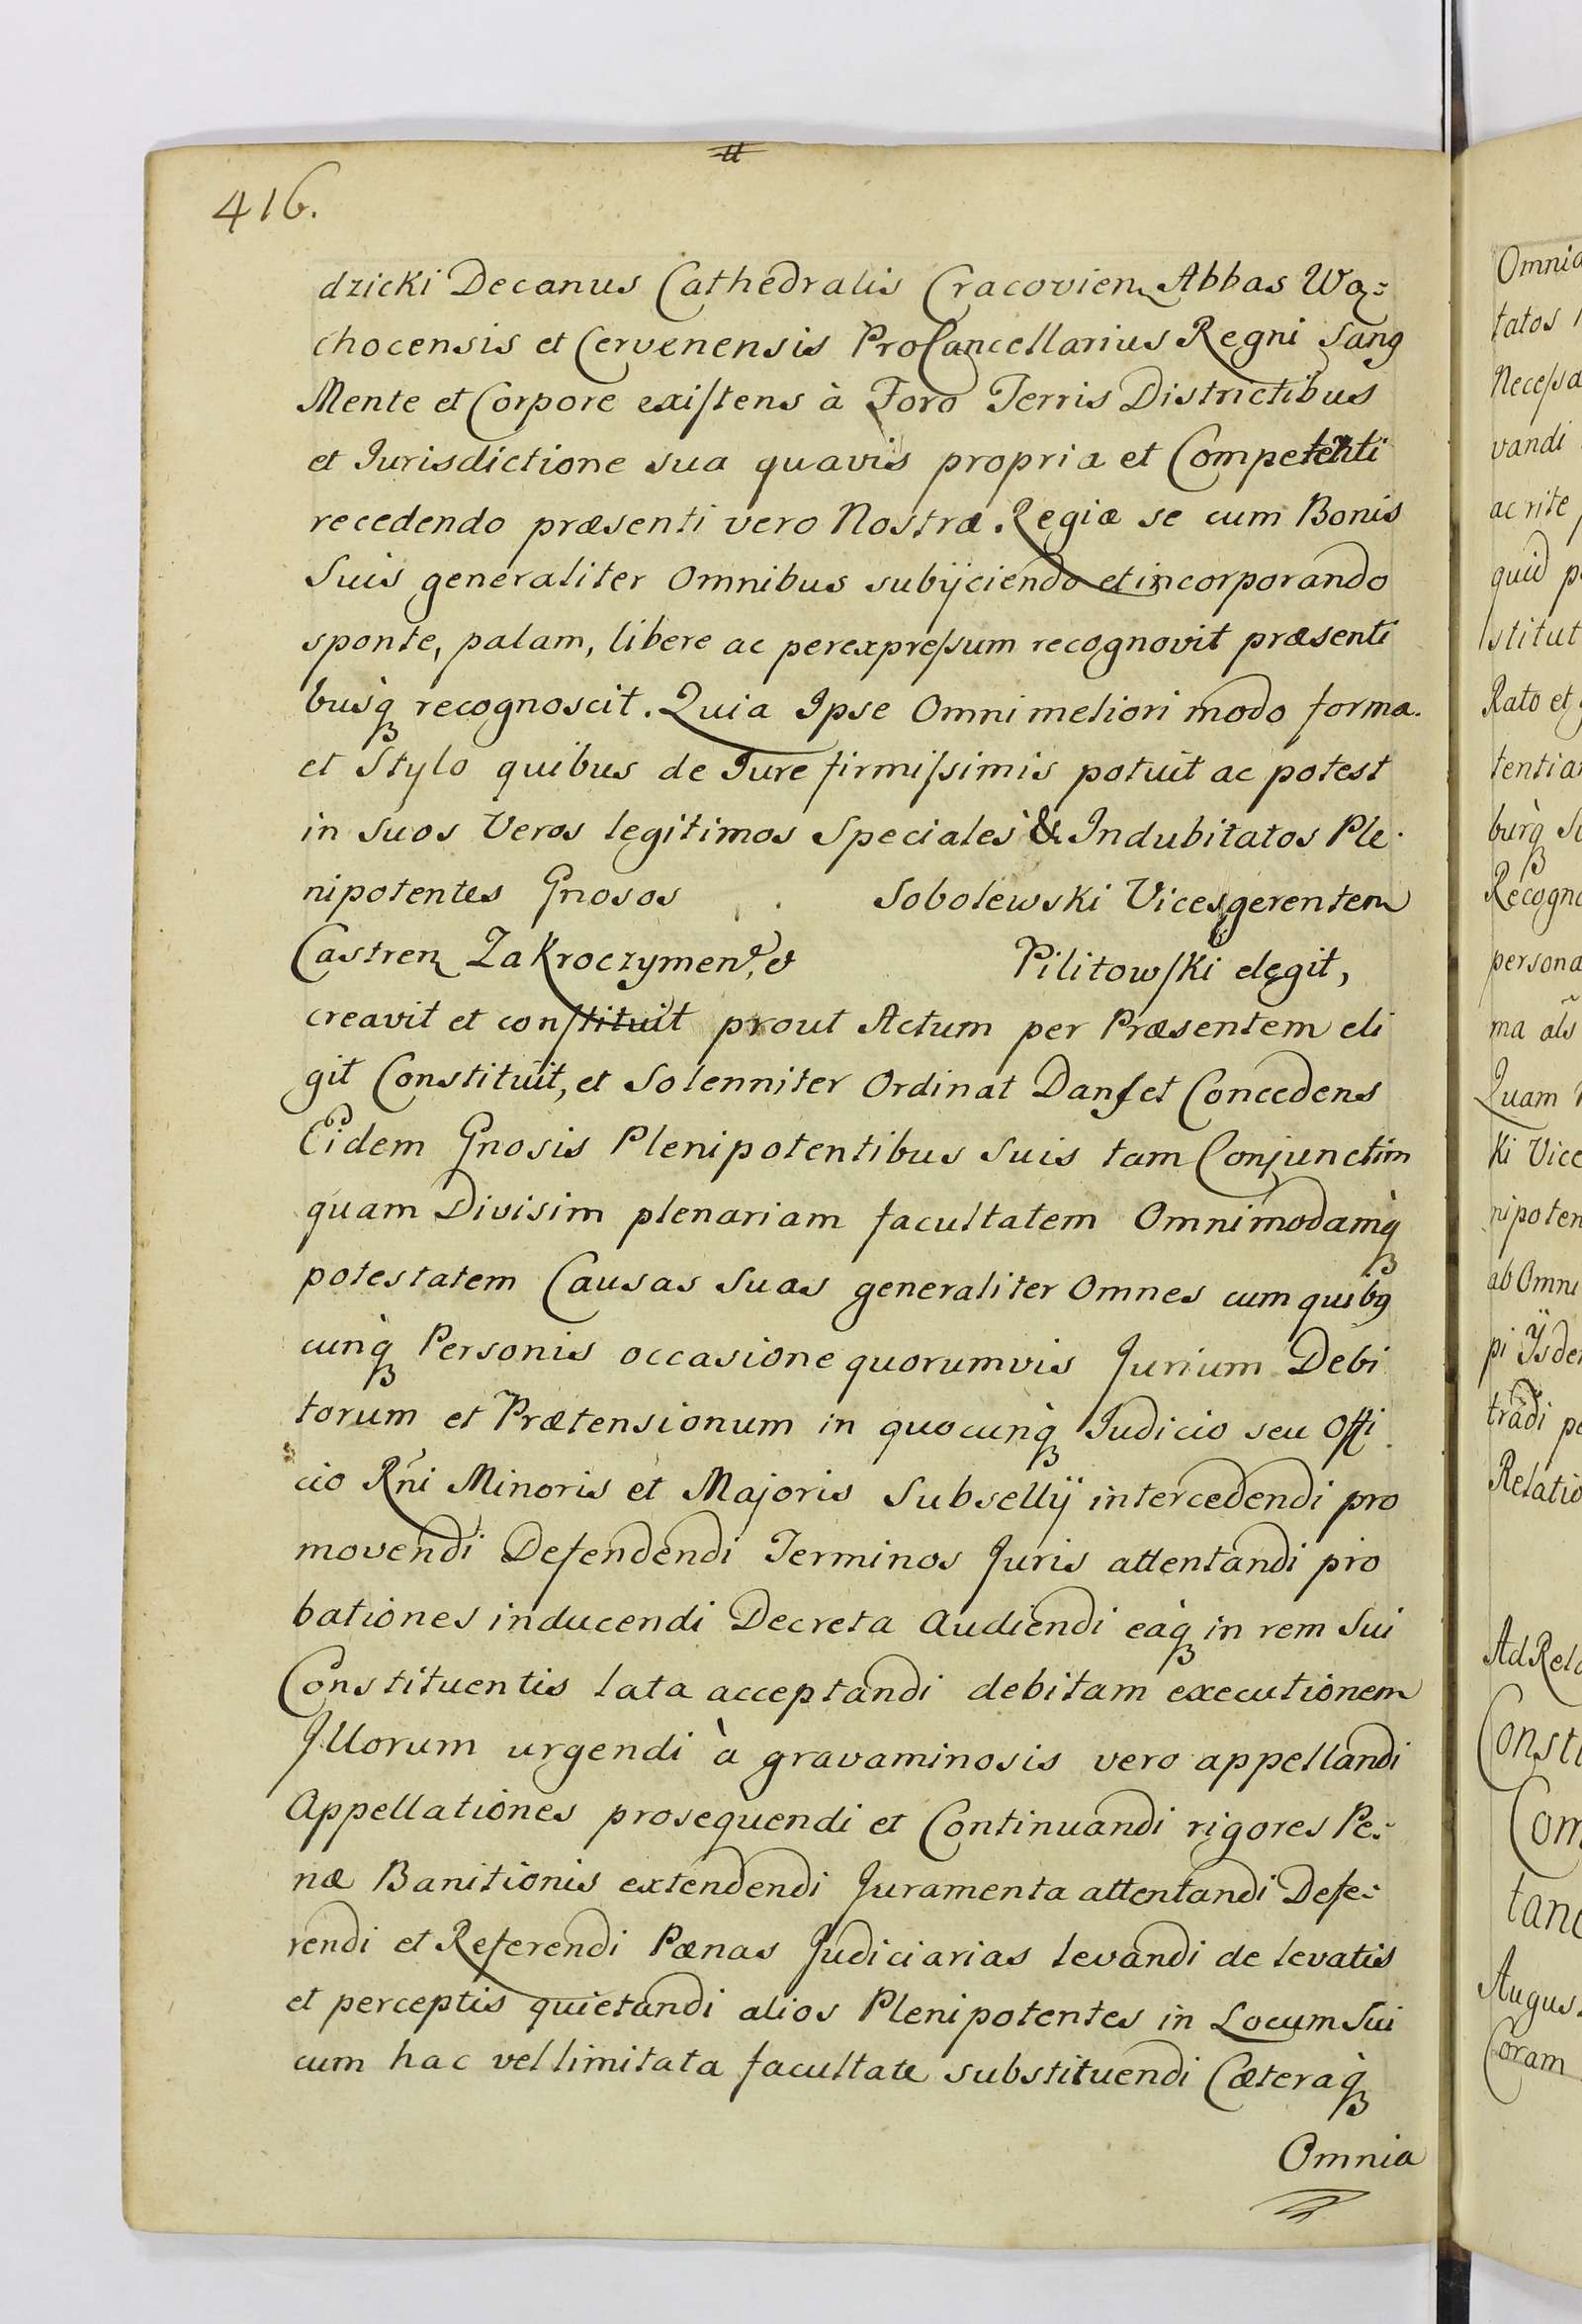 416.
dzicki Decanus Cathedralis Cracovien Abbas Wą=
chocensis et Cervenensis ProCancellarius Regni Sang
Mente et Corpore existens à Foro Terris Districtibus
et Iurisdictione sua quavis propria et Competenti
recedendo præsenti vero Nostræ Regiæ se cum Bonis
Suis generaliter Omnibus subijciendo et incorporando
sponte, palam, libere ac perexpressum recognovit præsenti
busq́ recognoscit. Quia Ipse Omni meliori modo forma
et Stylo quibus de Iure firmissimis potuit ac potest
in Suos Veros legitimos Speciales & Indubitatos Ple
nipotentes Gnosos Sobolewski Vicesgerentem
Castren Zakroczymen. et Pilitowski elegit,
creavit et constituit prout Actum per Præsentem eli
git Constituit, et Solenniter Ordinat Dans et Concedens
Eidem Gnosis Plenipotentibus Suis tam Conjunctim
quam Divisim plenariam facultatem Omnimodamq́
potestatem Causas Suas generaliter Omnes cum quibg
cunq́ Personis occasione quorumvis Jurium Debi
torum et Prætensionum in quocunq́ Iudicio seu Offi
cio Rñi Minoris et Majoris Subsellij intercedendi pro
movendi Defendendi Terminos Juris attentandi pro
bationes inducendi Decreta Audiendi eaq́ in rem Sui
Constituentis lata acceptandi debitam executionem
Illorum urgendi à gravaminosis vero appellandi
Appellationes prosequendi et Continuandi rigores Pe=
næ Banitionis extendendi Juramenta attentandi Defe=
rendi et Referendi Pænas Judiciarias levandi de levatis
et perceptis quietandi alios Plenipotentes in Locum Sui
cum hac vel limitata facultate substituendi Cæteraq́
Omnia
Omnia
tatos
Necessa
vandi
ac rite
quid
stitut
Rato et
tentia
Recogn
persona
ma als
Quam
ki Vice
nipoten
ab Omni
pi Ijsde
tradi
Relatio
Ad Rela
Consti
Com
tan
Augus
Coram